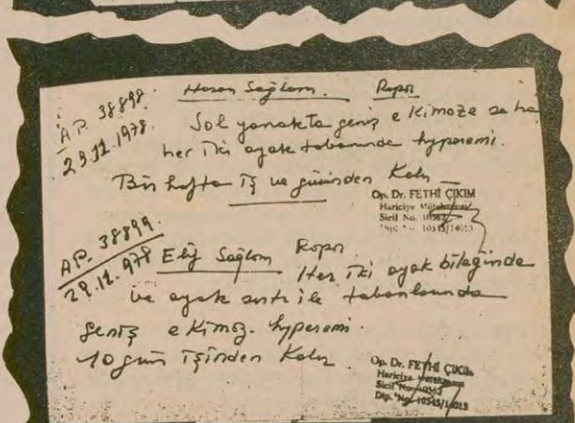 A.P. 38898.
29.12.1978.
Hasan Sağlam. Rapor
Sol yanakta geniş ekimoze saha
her iki ayak tabanında hyperemi.
Bir hafta iş ve gücünden Kalır
Op. Dr. FETHİ ÇIKIM
Hariciye Mütehassısı
Sicil No. 10562
A.P. 38899.
29.12.978 Elif Sağlam Rapor
Her iki ayak bileğinde
ve ayak sırtı ile tabanlarında
geniş ekimoz. hyperemi.
10 gün işinden Kalır
Op. Dr. FETHİ ÇIKIM
Hariciye Mütehassısı
Sicil No. 10562
Dip. No. 10545/14013